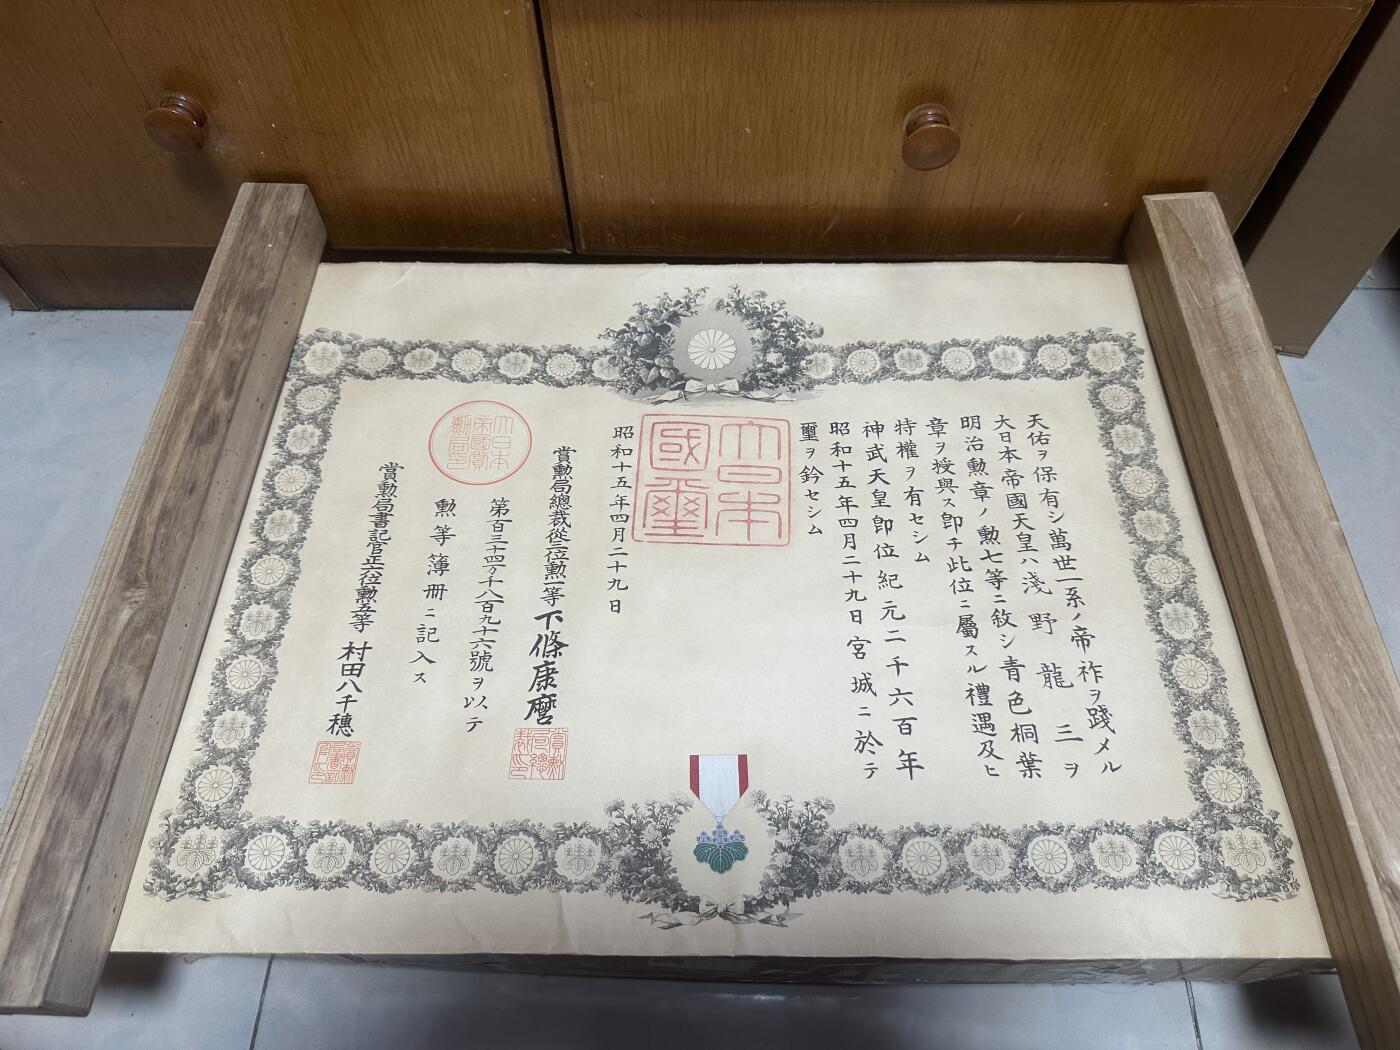 天佑ヲ保有シ萬世一系ノ帝祚ヲ踐メル
大日本帝國天皇ハ淺野龍三ヲ
明治勲章ノ勲七等ニ敘シ青色桐葉
章ヲ授與ス即チ此位ニ屬スル禮遇及ヒ
特權ヲ有セシム
神武天皇即位紀元二千六百年
昭和十五年四月二十九日宮城ニ於テ
璽ヲ鈐セシム
大日本
國璽
昭和十五年四月二十九日
賞勲局總裁從三位勲一等下條康麿
第百三十四万千八百九十六號ヲ以テ
勲等簿冊ニ記入ス
賞勲局書記官正六位勲五等村田八千穗
大日本
帝國賞
勲局印